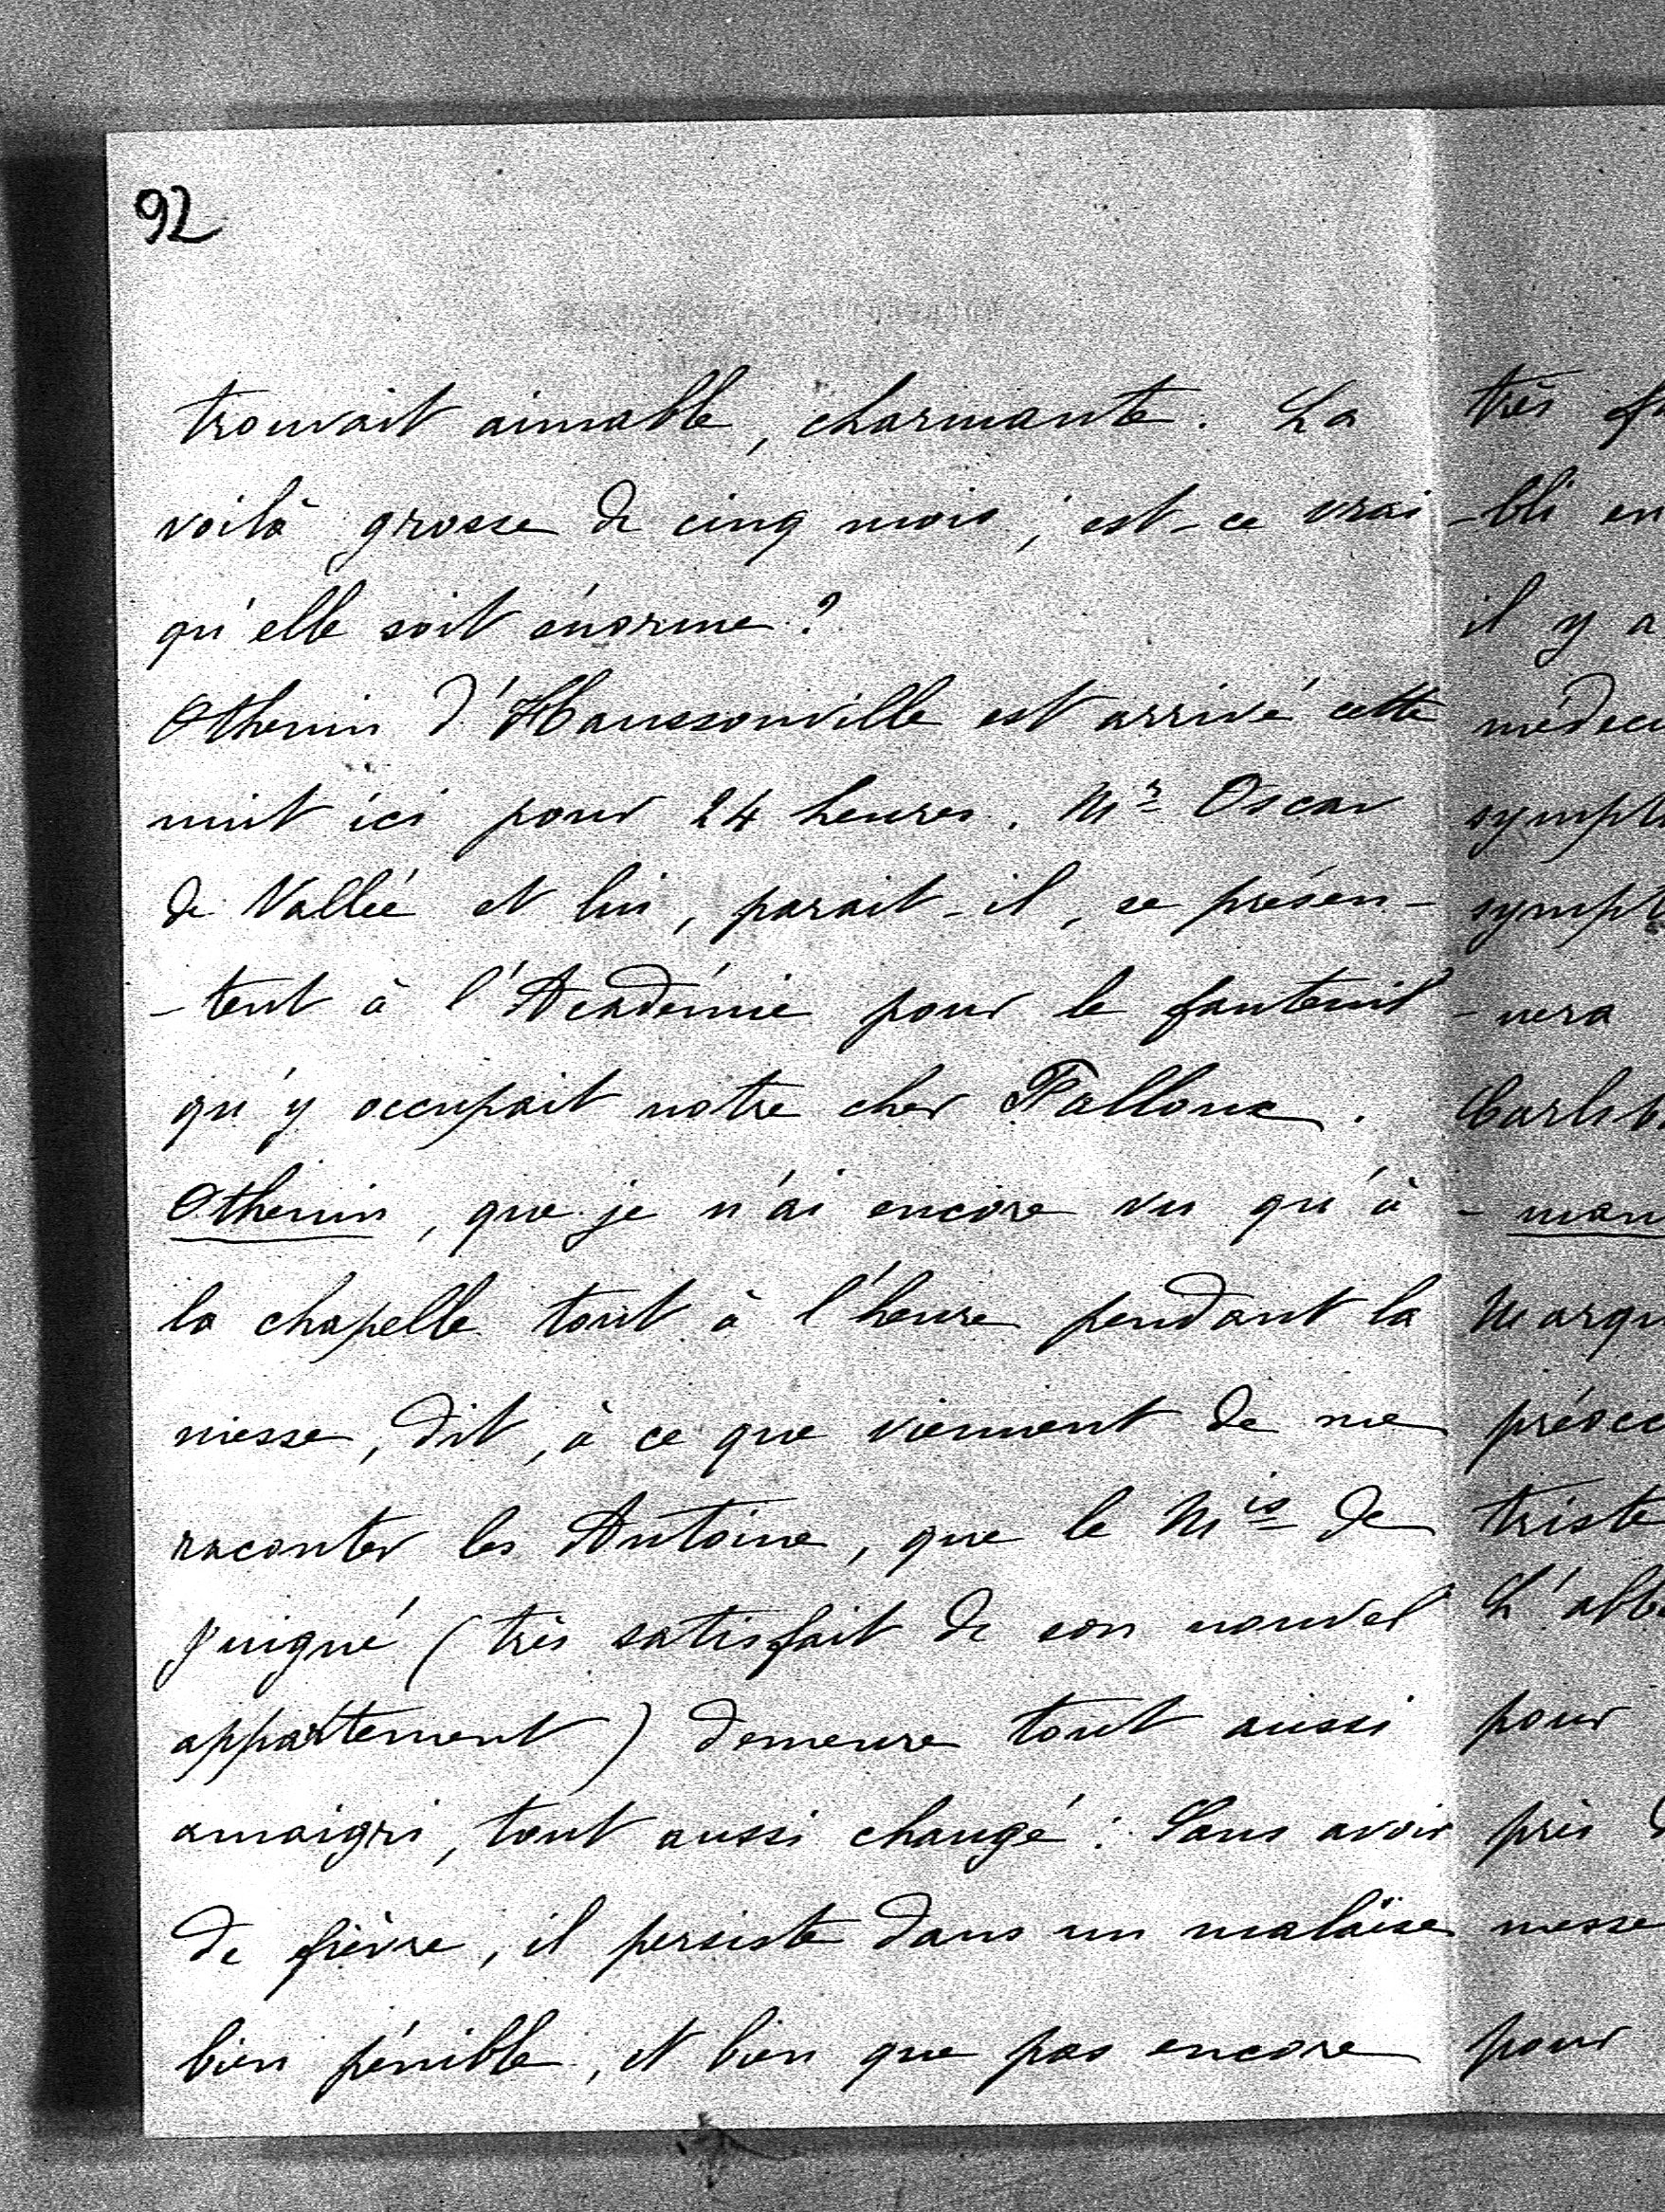 92
trouvait aimable, charmante. La
voilà grosse de cinq mois ; est-ce vrai
qu'elle soit énorme ?
Othenin d'Haussonville est arrivé cette
nuit ici pour 24 heures. Mr Oscar
de Vallée et lui, parait-il, se présen-
-tent à l'Académie pour le fauteuil
qu'y occupait notre cher Falloux.
Othenin, que je n'ai encore vu qu'à
la chapelle tout à l'heure pendant la
messe, dit, à ce que viennent de me
raconter les Antoine, que le Mis de
Juigné (très satisfait de son nouvel
appartement) demeure tout aussi
amaigri, tout aussi changé : Sans avoir
de fièvre, il persiste dans un malaïse
bien pénible, et bien que pas encore
très
-bli en
il y a
-nera
triste
pour
près
messe
pour